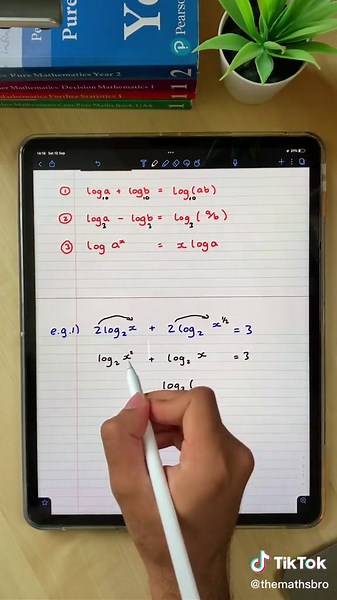 Pure
Pure
Yo
Pearson
Pure Mathematics Year 2
2
Mathematics Decision Mathematics 1
Further Statistics 1
① log₁₀a + log₁₀b = log₁₀(ab)
② log₃a − log₃b = log₃(a/b)
③ log aˣ = x log a
e.g.1) 2log₂x + 2log₂ x^½ = 3
log₂x² + log₂ x = 3
log₂(
TikTok
@themathsbro